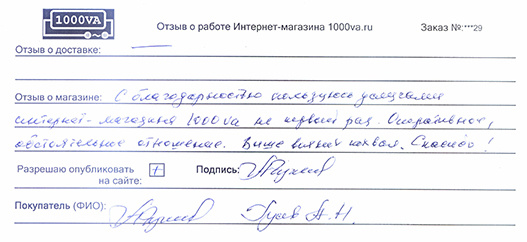 1000VA
Отзыв о работе Интернет-магазина 1000va.ru
Заказ №:***29
Отзыв о доставке: —
Отзыв о магазине: С благодарностью пользуюсь услугами
интернет-магазина 1000va не первый раз. Оперативное,
обстоятельное отношение. Выше всяких похвал. Спасибо!
Разрешаю опубликовать
на сайте: +
Подпись:
Покупатель (ФИО): Гусев А.Н.